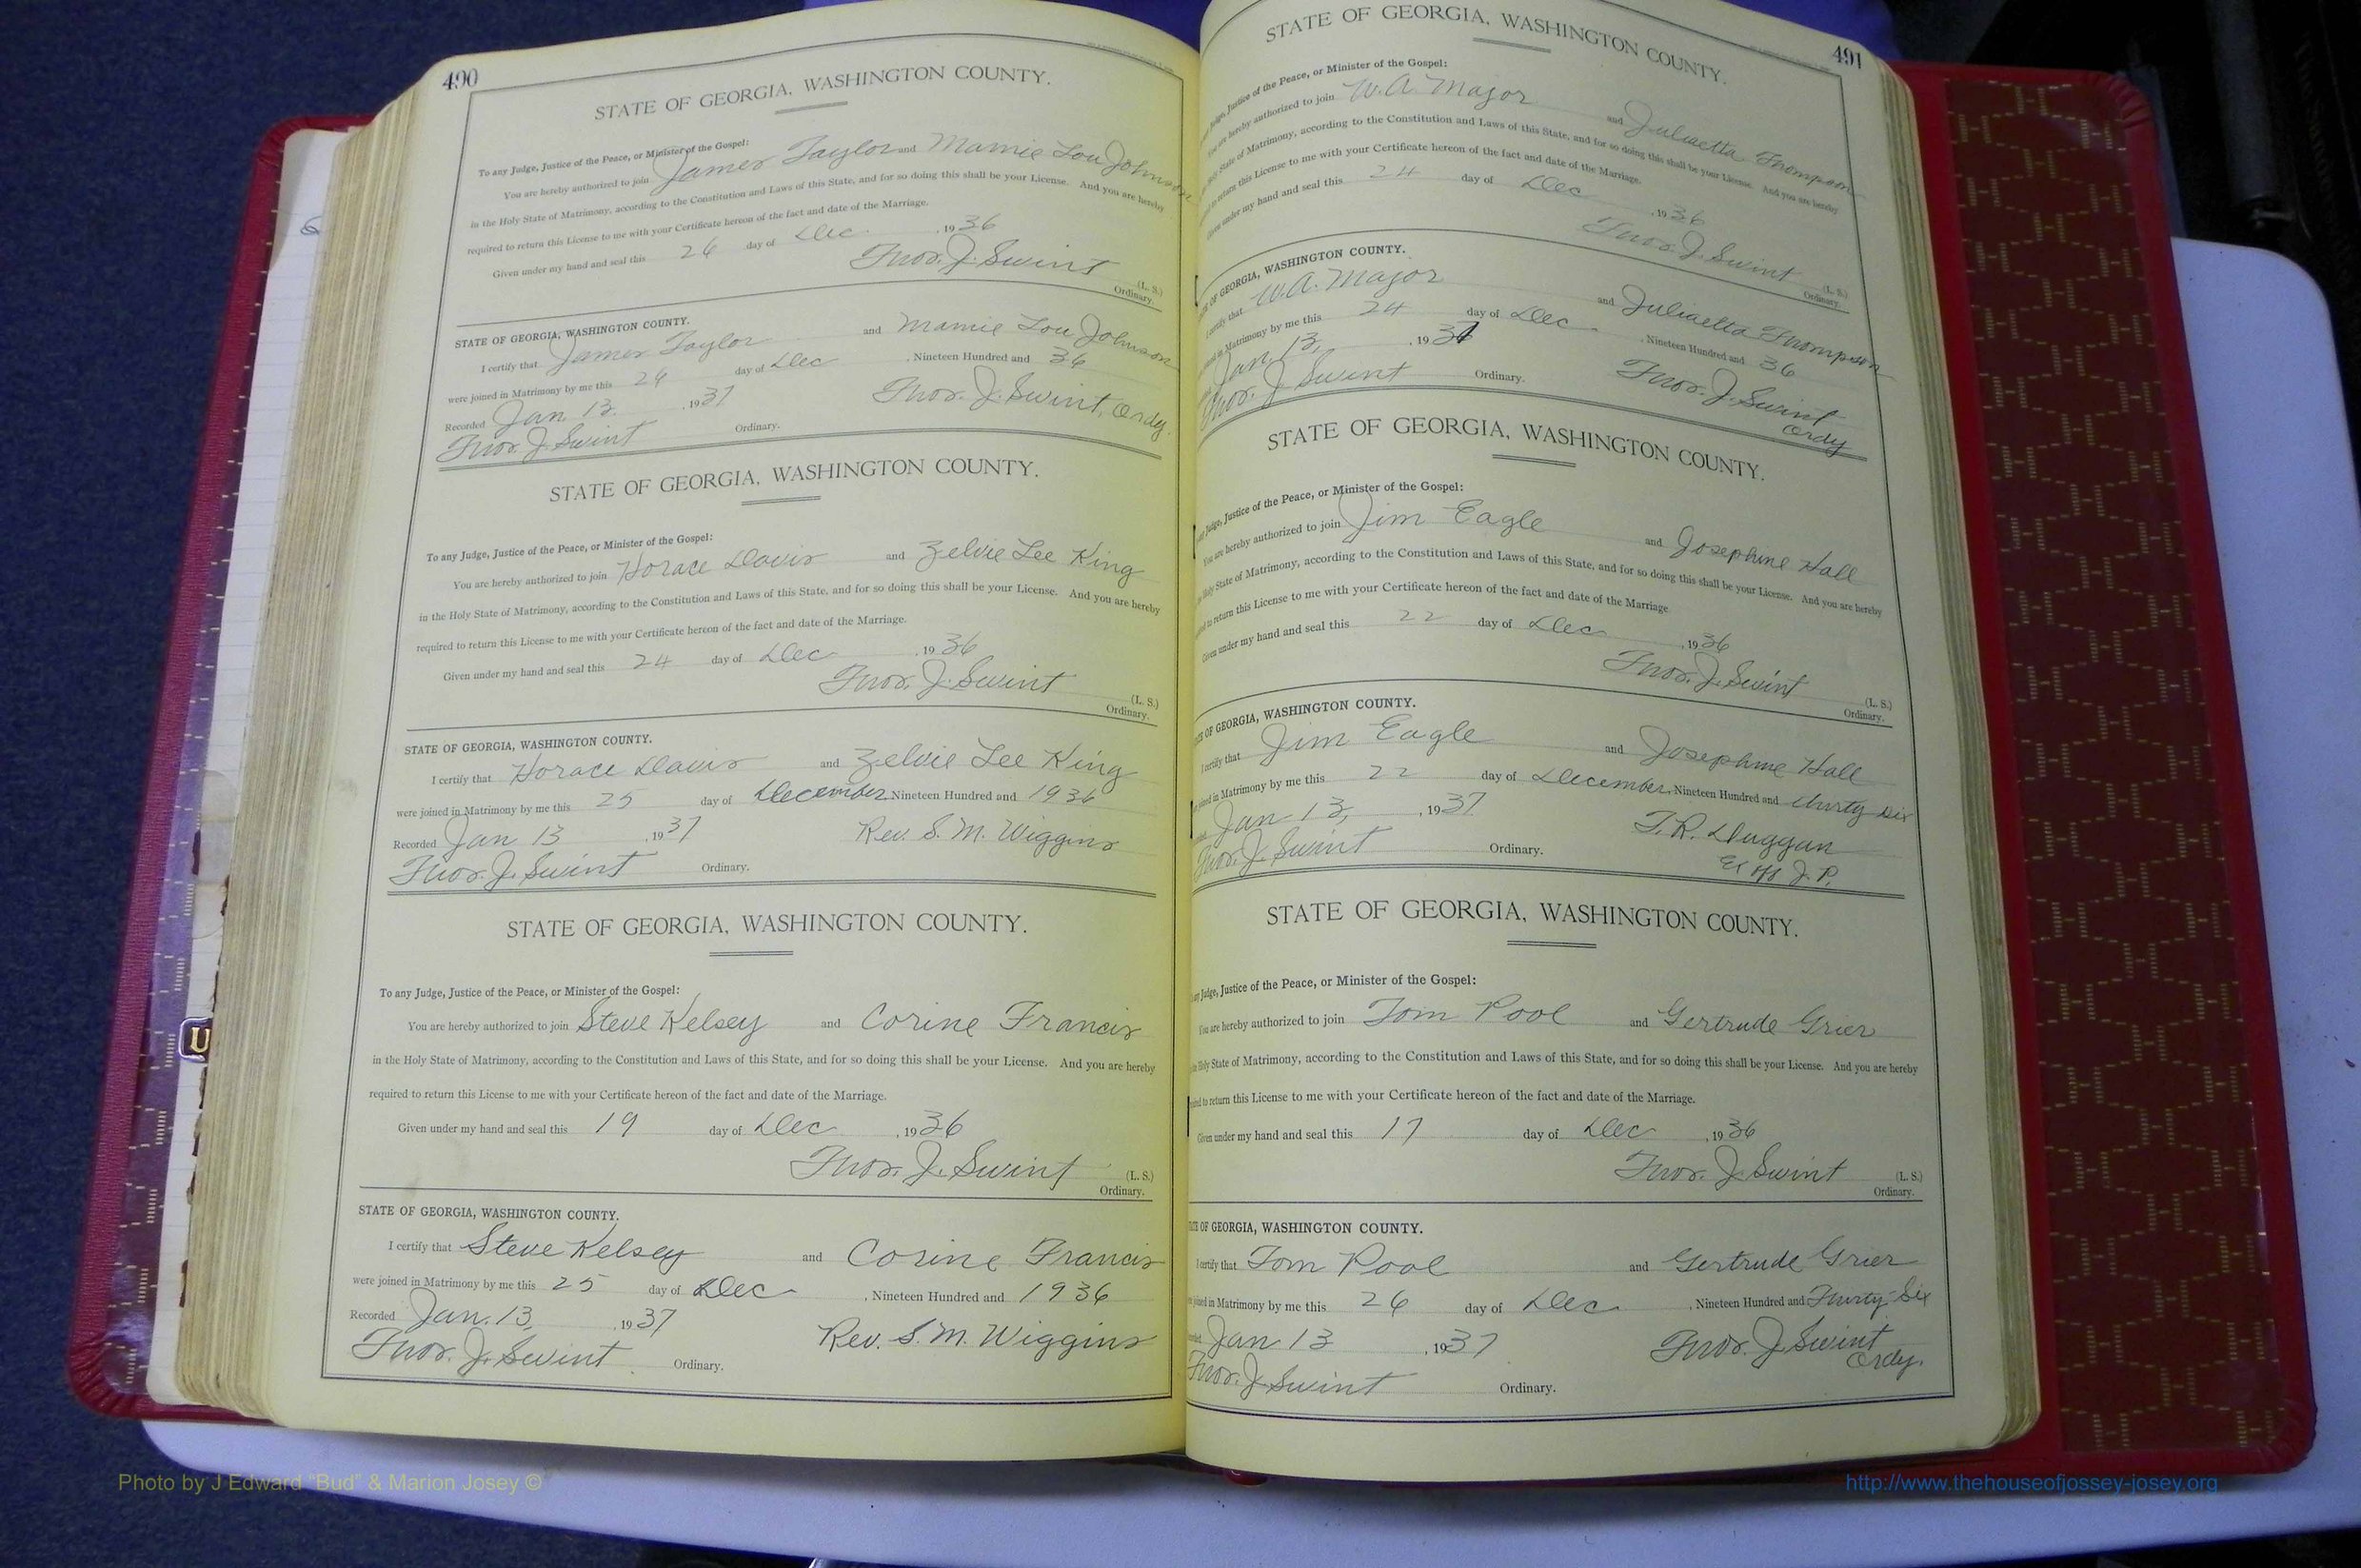 490
STATE OF GEORGIA, WASHINGTON COUNTY.
To any Judge, Justice of the Peace, or Minister of the Gospel:
You are hereby authorized to join James Taylor and Mamie Lou Johnson
in the Holy State of Matrimony, according to the Constitution and Laws of this State, and for so doing this shall be your License. And you are hereby
required to return this License to me with your Certificate hereon of the fact and date of the Marriage.
Given under my hand and seal this 26 day of Dec. , 1936
Thos. J. Swint (L. S.)
Ordinary.
STATE OF GEORGIA, WASHINGTON COUNTY.
I certify that James Taylor and Mamie Lou Johnson
were joined in Matrimony by me this 26 day of Dec , Nineteen Hundred and 36
Recorded Jan 13. , 1937 Thos. J. Swint, Ordy.
Thos. J. Swint Ordinary.
STATE OF GEORGIA, WASHINGTON COUNTY.
To any Judge, Justice of the Peace, or Minister of the Gospel:
You are hereby authorized to join Horace Davis and Zelvie Lee King
in the Holy State of Matrimony, according to the Constitution and Laws of this State, and for so doing this shall be your License. And you are hereby
required to return this License to me with your Certificate hereon of the fact and date of the Marriage.
Given under my hand and seal this 24 day of Dec , 1936
Thos. J. Swint (L. S.)
Ordinary.
STATE OF GEORGIA, WASHINGTON COUNTY.
I certify that Horace Davis and Zelvie Lee King
were joined in Matrimony by me this 25 day of December, Nineteen Hundred and 1936
Recorded Jan 13 , 1937 Rev. S. M. Wiggins
Thos. J. Swint Ordinary.
STATE OF GEORGIA, WASHINGTON COUNTY.
To any Judge, Justice of the Peace, or Minister of the Gospel:
You are hereby authorized to join Steve Kelsey and Corine Francis
in the Holy State of Matrimony, according to the Constitution and Laws of this State, and for so doing this shall be your License. And you are hereby
required to return this License to me with your Certificate hereon of the fact and date of the Marriage.
Given under my hand and seal this 19 day of Dec , 1936
Thos. J. Swint (L. S.)
Ordinary.
STATE OF GEORGIA, WASHINGTON COUNTY.
I certify that Steve Kelsey and Corine Francis
were joined in Matrimony by me this 25 day of Dec , Nineteen Hundred and 1936
Recorded Jan. 13, , 1937 Rev. S. M. Wiggins
Thos. J. Swint Ordinary.
491
STATE OF GEORGIA, WASHINGTON COUNTY.
Judge, Justice of the Peace, or Minister of the Gospel:
You are hereby authorized to join W. A. Major and Juliaetta Thompson
Holy State of Matrimony, according to the Constitution and Laws of this State, and for so doing this shall be your License. And you are hereby
to return this License to me with your Certificate hereon of the fact and date of the Marriage.
Given under my hand and seal this 24 day of Dec , 1936
Thos. J. Swint (L. S.)
Ordinary.
OF GEORGIA, WASHINGTON COUNTY.
I certify that W. A. Major and Juliaetta Thompson
joined in Matrimony by me this 24 day of Dec , Nineteen Hundred and 36
Jan. 13, , 1937 Thos. J. Swint
Thos. J. Swint Ordinary. Ordy
STATE OF GEORGIA, WASHINGTON COUNTY.
Judge, Justice of the Peace, or Minister of the Gospel:
You are hereby authorized to join Jim Eagle and Josephine Hall
Holy State of Matrimony, according to the Constitution and Laws of this State, and for so doing this shall be your License. And you are hereby
to return this License to me with your Certificate hereon of the fact and date of the Marriage
Given under my hand and seal this 22 day of Dec , 1936
Thos. J. Swint (L. S.)
Ordinary.
OF GEORGIA, WASHINGTON COUNTY.
I certify that Jim Eagle and Josephine Hall
joined in Matrimony by me this 22 day of December, Nineteen Hundred and thirty six
Jan 13, , 1937 T. R. Duggan
Thos. J. Swint Ordinary. Ex off J. P.
STATE OF GEORGIA, WASHINGTON COUNTY.
any Judge, Justice of the Peace, or Minister of the Gospel:
You are hereby authorized to join Tom Pool and Gertrude Grier
Holy State of Matrimony, according to the Constitution and Laws of this State, and for so doing this shall be your License. And you are hereby
to return this License to me with your Certificate hereon of the fact and date of the Marriage.
Given under my hand and seal this 17 day of Dec , 1936
Thos. J. Swint (L. S.)
Ordinary.
OF GEORGIA, WASHINGTON COUNTY.
I certify that Tom Pool and Gertrude Grier
joined in Matrimony by me this 26 day of Dec , Nineteen Hundred and Thirty-Six
Jan 13 , 1937 Thos. J. Swint
Thos. J. Swint Ordinary. Ordy.
U
Photo by J Edward "Bud" & Marion Josey ©
http://www.thehouseofjossey-josey.org